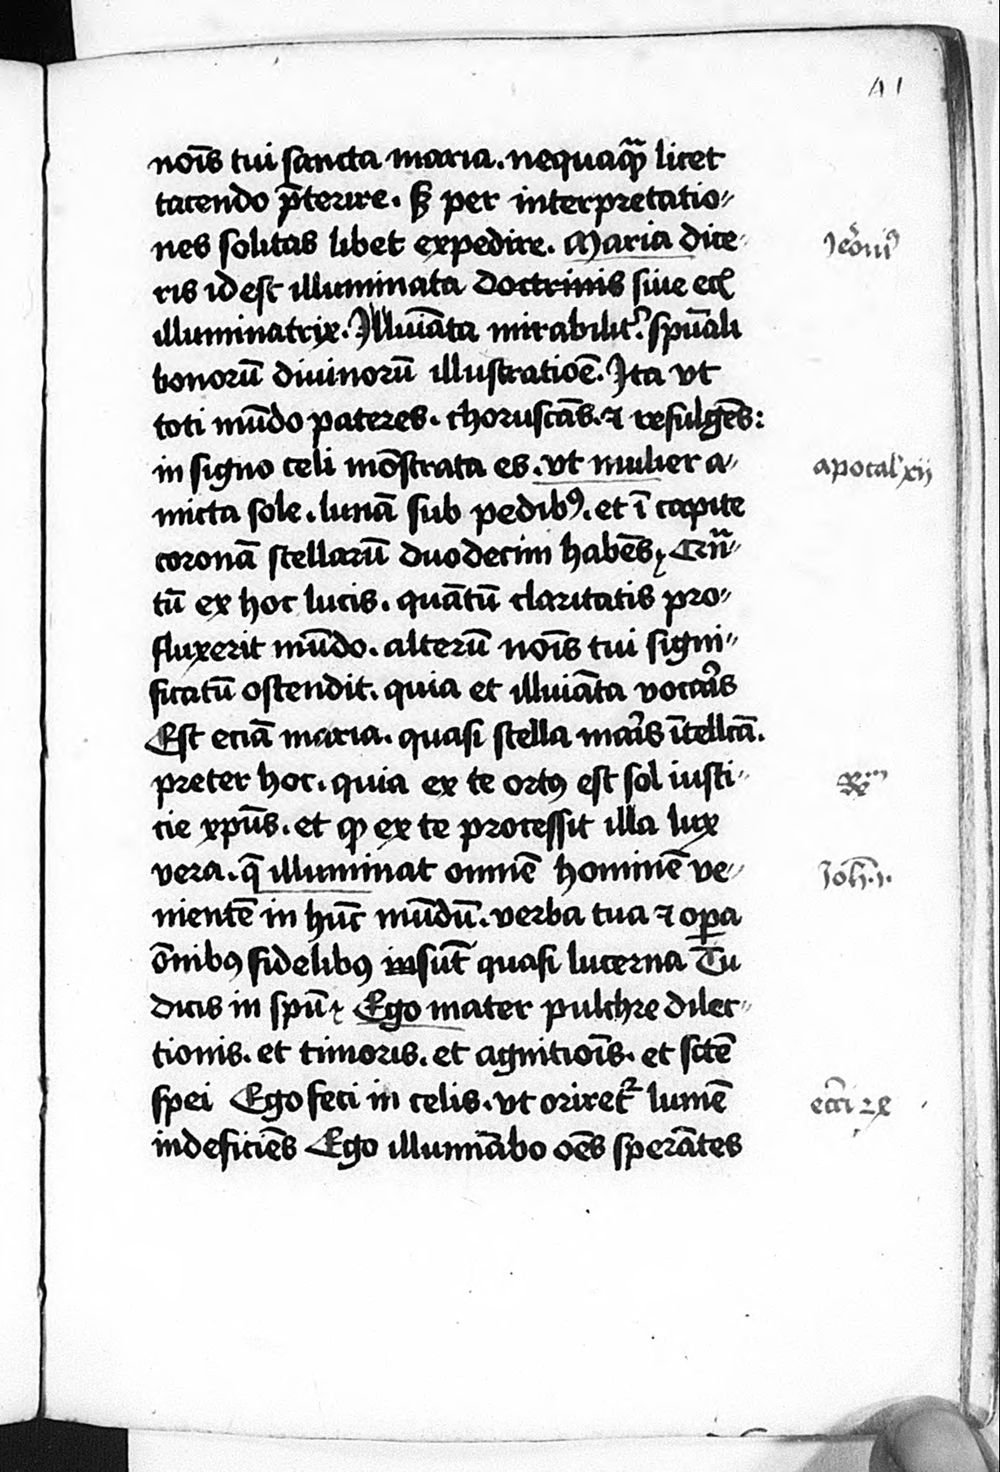 41
noīs tui sancta maria. nequaq̄ʒ licet
tacendo p̄terire. Sʒ per interpretatio⸗
nes solitas libet expedire. Maria dice⸗
Jeronimꝰ
ris id est illuminata doctrinis siue ecī
illuminatrix. Illuīata mirabilitʼ spūali
bonorū diuinorū illustratiōe. Ita vt
toti mūdo pateres. choruscās. ⁊ refulgēs:
in signo celi mōstrata es. vt mulier a⸗
apocal' xij
micta sole. lunā sub pedibꝰ. et ī capite
coronā stellarū duodecim habēs
tū ex hoc lucis. quātū claritatis pro⸗
fluxerit mūdo. alterū noīs tui signi⸗
ficatū ostendit. quia et illuīata vocaris
Est eciā maria. quasi stella maris ītellcā.
preter hoc. quia ex te ortꝰ est sol iusti⸗
cie xp̄us. et ꝙ ex te processit illa lux
vera. q̄ illuminat omnē hominē ve⸗
Joh̄. 1.
nientē in hūc mūdū. verba tua ⁊ oꝑa
ōnibꝰ fidelibꝰ insūt quasi lucerna Tu
dicis in spū Ego mater pulchre dilec⸗
tionis. et timoris. et agnitiōis. et sctē
spei Ego feci in celis. vt oriretʼ lumē
eccī 24
indeficiēs Ego illumīabo oēs sperātes